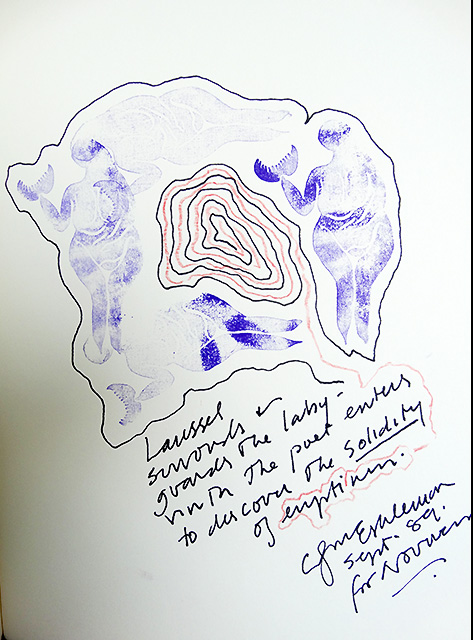 Laussel
surrounds &
guards the laby-
rinth the poet enters
to discover the solidity
of emptiness.
Clayton Eshleman
Sept. 89.
for